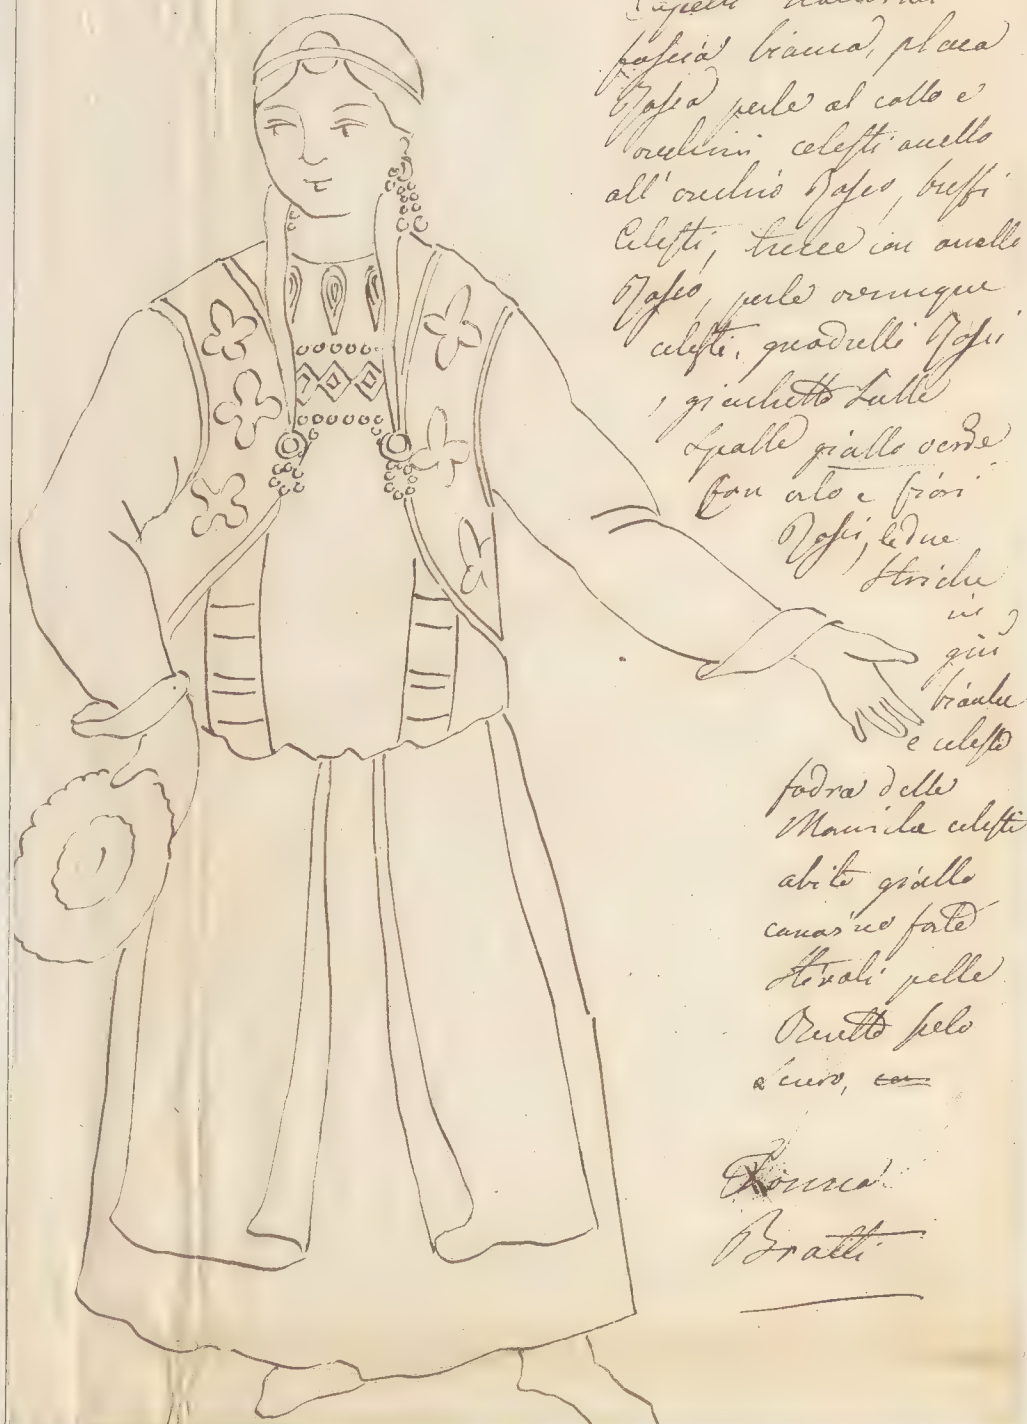 Capelli
fascia bianca, placa
Rossa perle al collo e
orechini celesti anello
all'orechio Rosso, buffi
Celesti, trecce con anello
Rosso, perle ovunque
celesti, quadrelli Rossi
, giachetto sulle
Spalle giallo verde
con orlo e fiori
Rossi, le due
striche
in
giù
bianche
e celeste
fodra delle
Maniche celesti
abito giallo
canarino forte
stivali pelle
pelo
scuro, con
Donna
Bratti